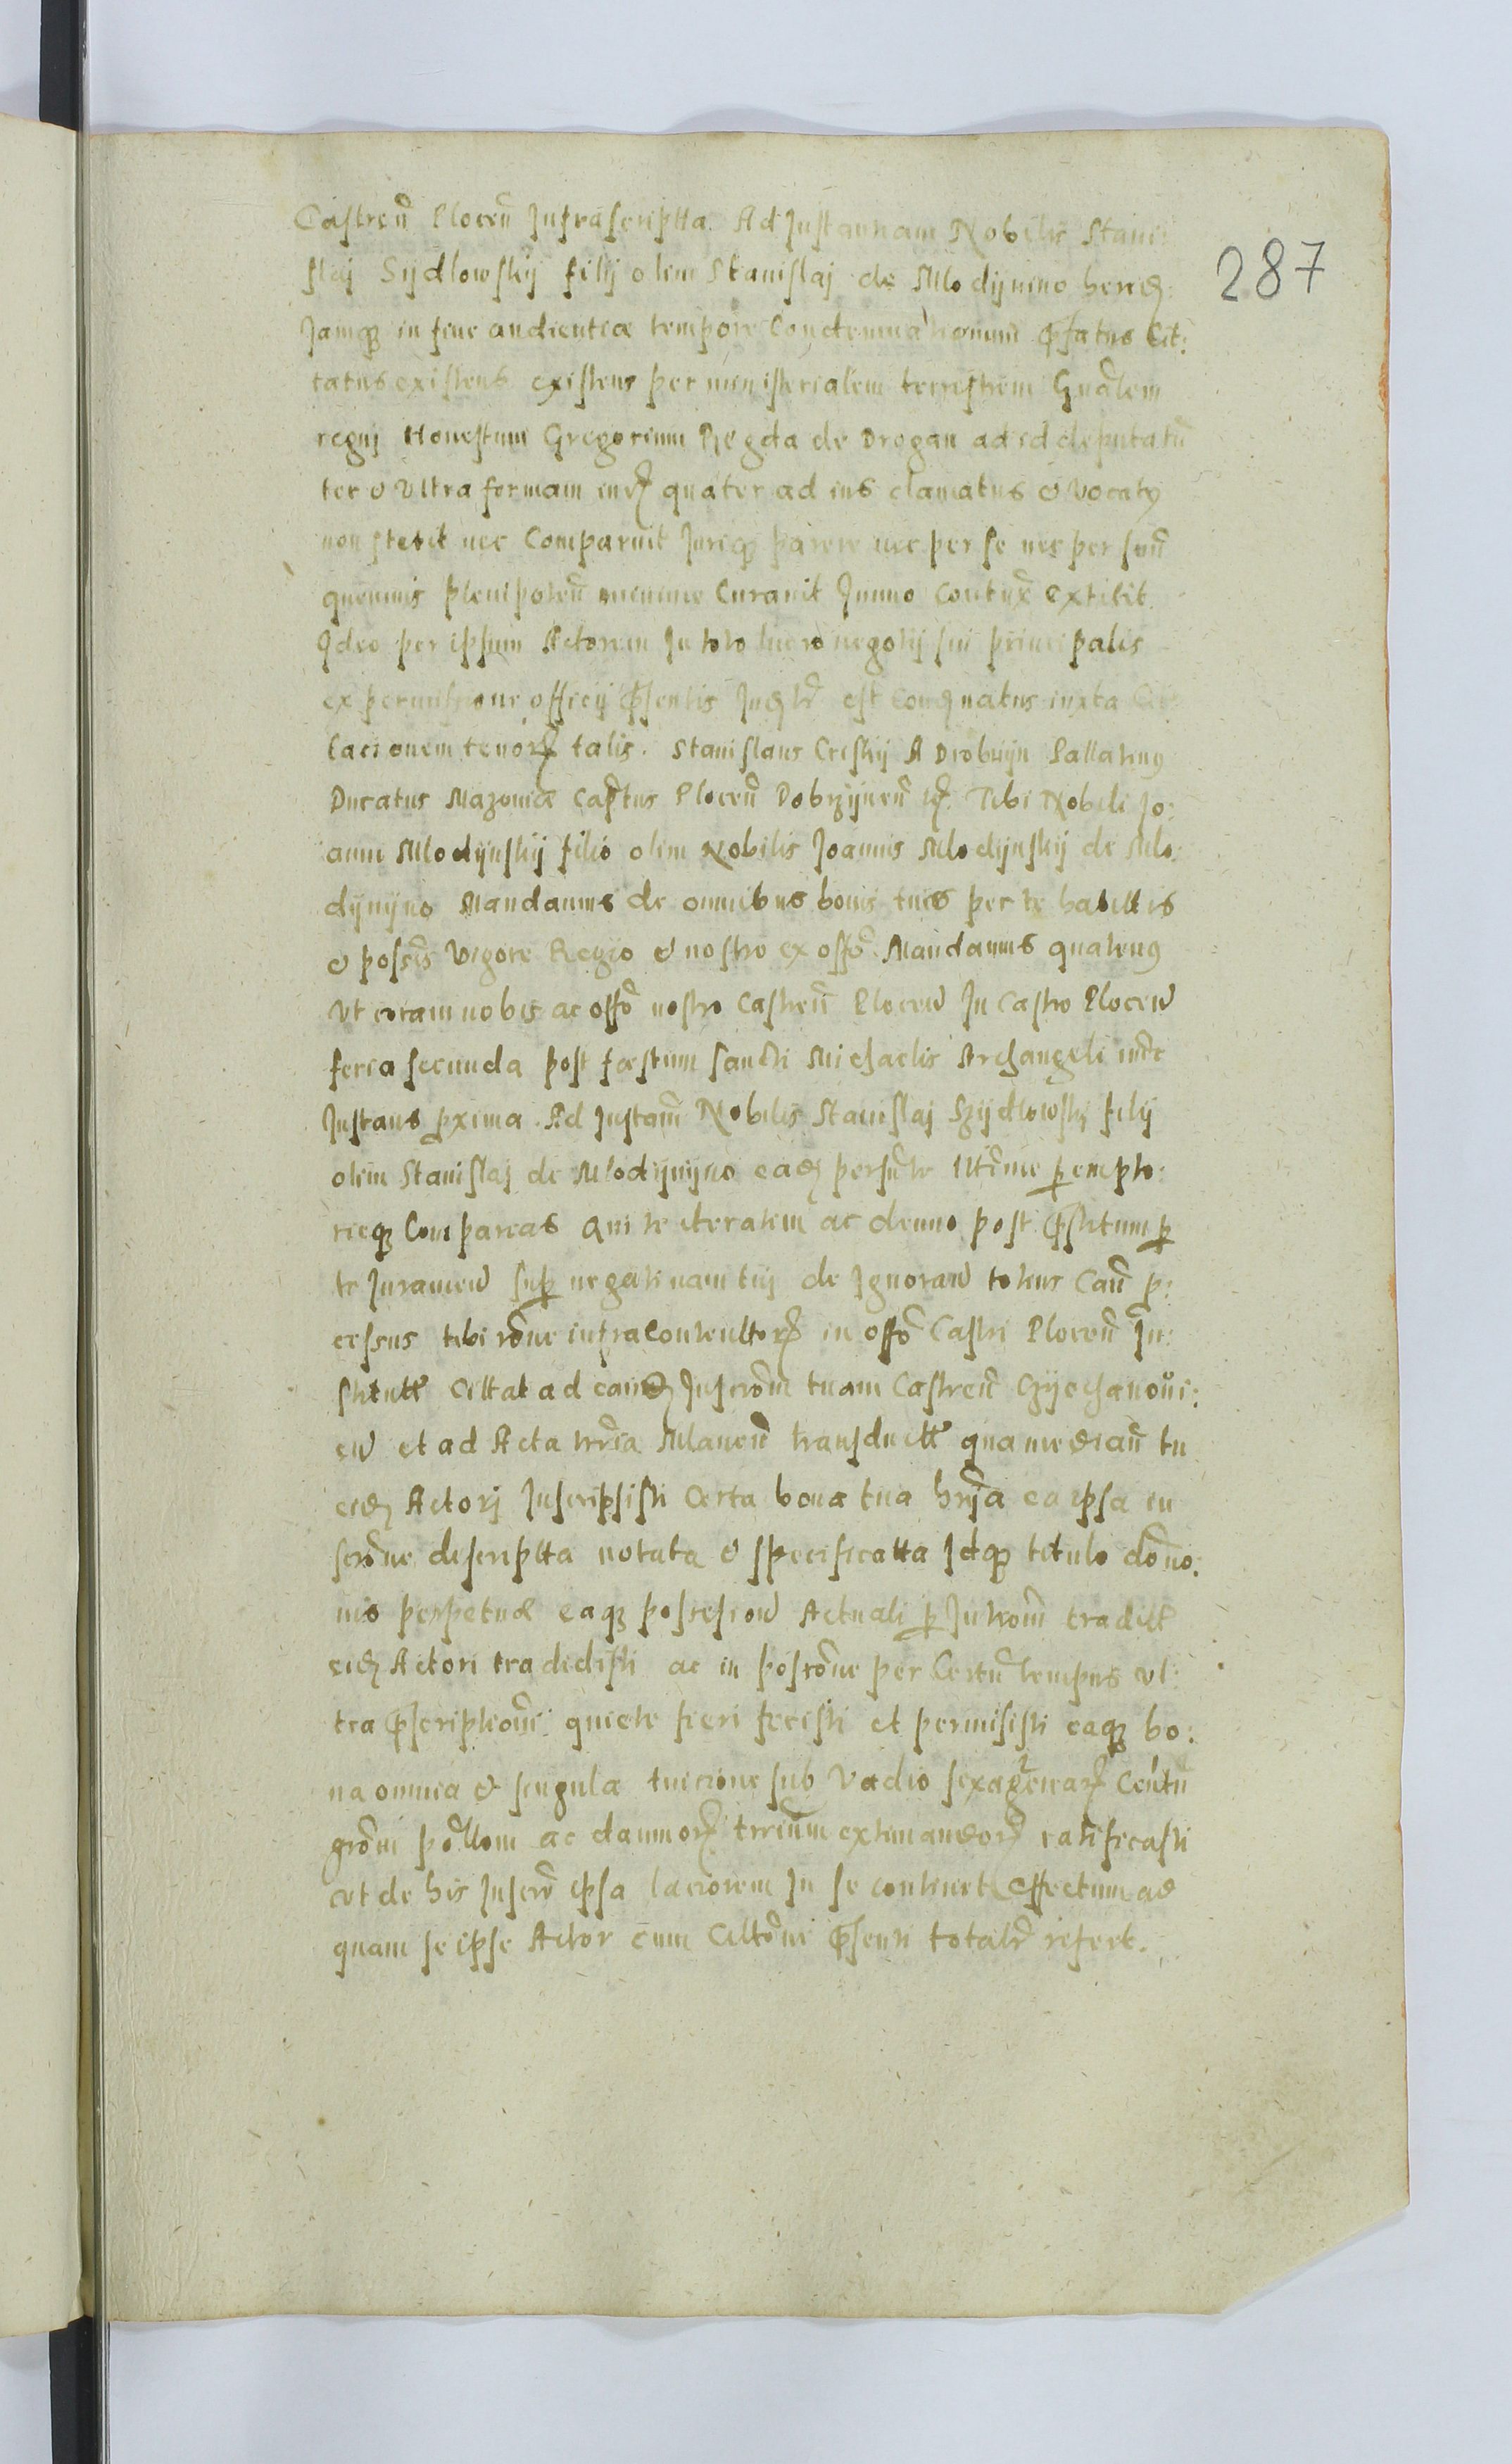 Castreñ Ploceñ Infrascriptta. Ad Instantiam Nobilis Stani:
slaj Sijdlowskij filij olim Stanislaj de Mlodijnino hered.
Jamqꝫ in fine audientiæ tempore Condemnationum Pfatus Cit:
tatus existens existens per ministerialem terrestrem Gñalem
regnj Honestum Gregorium Regda de Drogan ad id deputatũ
ter & Ultra formam iur quater ad ius clamatus & vocatꝯ
non stetit nec Comparuit Juriqꝫ parere nec per se nec per suũ
quemuis plenipoteñ minime Curauit Immo Contux extitit.
Ideo per ipsum Actorem In toto lucro negotij sui principalis
ex permissione officij Psentis Judtr est condnatus iuxta Cit
tacionem tenor talis. Stanislaus Criskij A Drobnijn Pallatinꝯ
Ducatus Mazouiæ Captus Ploceñ Dobrzijneñ Tibi Nobili Jo:
anni Mlodijnskij filio olim Nobilis Joannis Mlodijnskij de Mlo:
dijnijno Mandamus de omnibus bonis tuis per te habittis
& possis Vigore Regio & nostro ex offo. Mandamus quatenꝯ
Vt coram nobis ac offo nostro Castreñ Ploceñ In Castro Ploceñ
feria secunda post fæstum sancti Michaelis Archangeli nuc
Instans pxima. Ad Instam Nobilis Stanislaj Szijdlowskj filij
olim Stanislaj de Mlodijnijno ead personlr pempto:
rieqꝫ Compareas Qui te iteratim ac denuo post Pstitum p
te Jurameñ sup negatiuam tuj de Ignorañ totius Cau p:
cessus tibi rone infracontenttor in offo Castri Ploceñ In:
stitutt Cittat ad eand Inscrom tuam Castreñ Czijechanoui:
eñ et ad Acta trria Mlaueñ transductt qua mediañ tu
eid Actorj Inscripsisti Certa bona tua hrria ea ipsa in
scrone descriptta notata & specificatta Idqꝫ titulo dono:
nis perpetuæ eaqꝫ possesioñ Actuali p Introm traditt
eid Actori tradidisti ac in possone per Certu tempus vl:
tra Pscriptiom quiete fieri fecisti et permisisti eaqꝫ bo:
na omnia & singula tuicione sub Vadio sexagenar Centũ
grom pollon ac damnor terrium extimandor ratificasti
vt de his Inscro ipsa laciorem In se continet effectum ad
quam se ipse Actor cum Cittoni Psenti totalr refert.
287